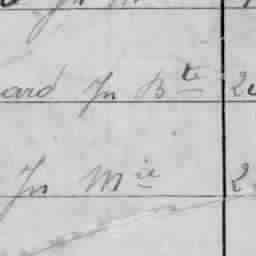 ard Jn Bte 2
Jn Mie 2